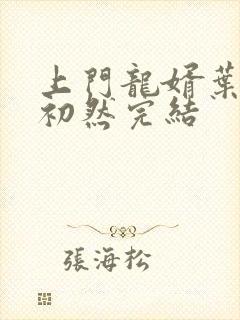 上門龍婿葉
初然完結
張海松